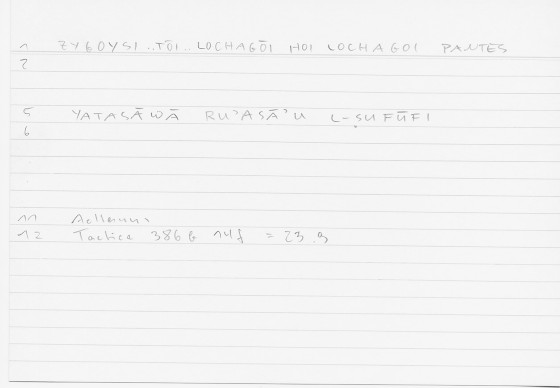 1 ZYGOYSI..TŌI..LOCHAGŌI HOI LOCHAGOI PANTES
2
5 YATASĀWĀ RUʾASĀʾU L-ṢUFŪFI
6
11 Aelianus
12 Tactica 386 b 14f = 23.9